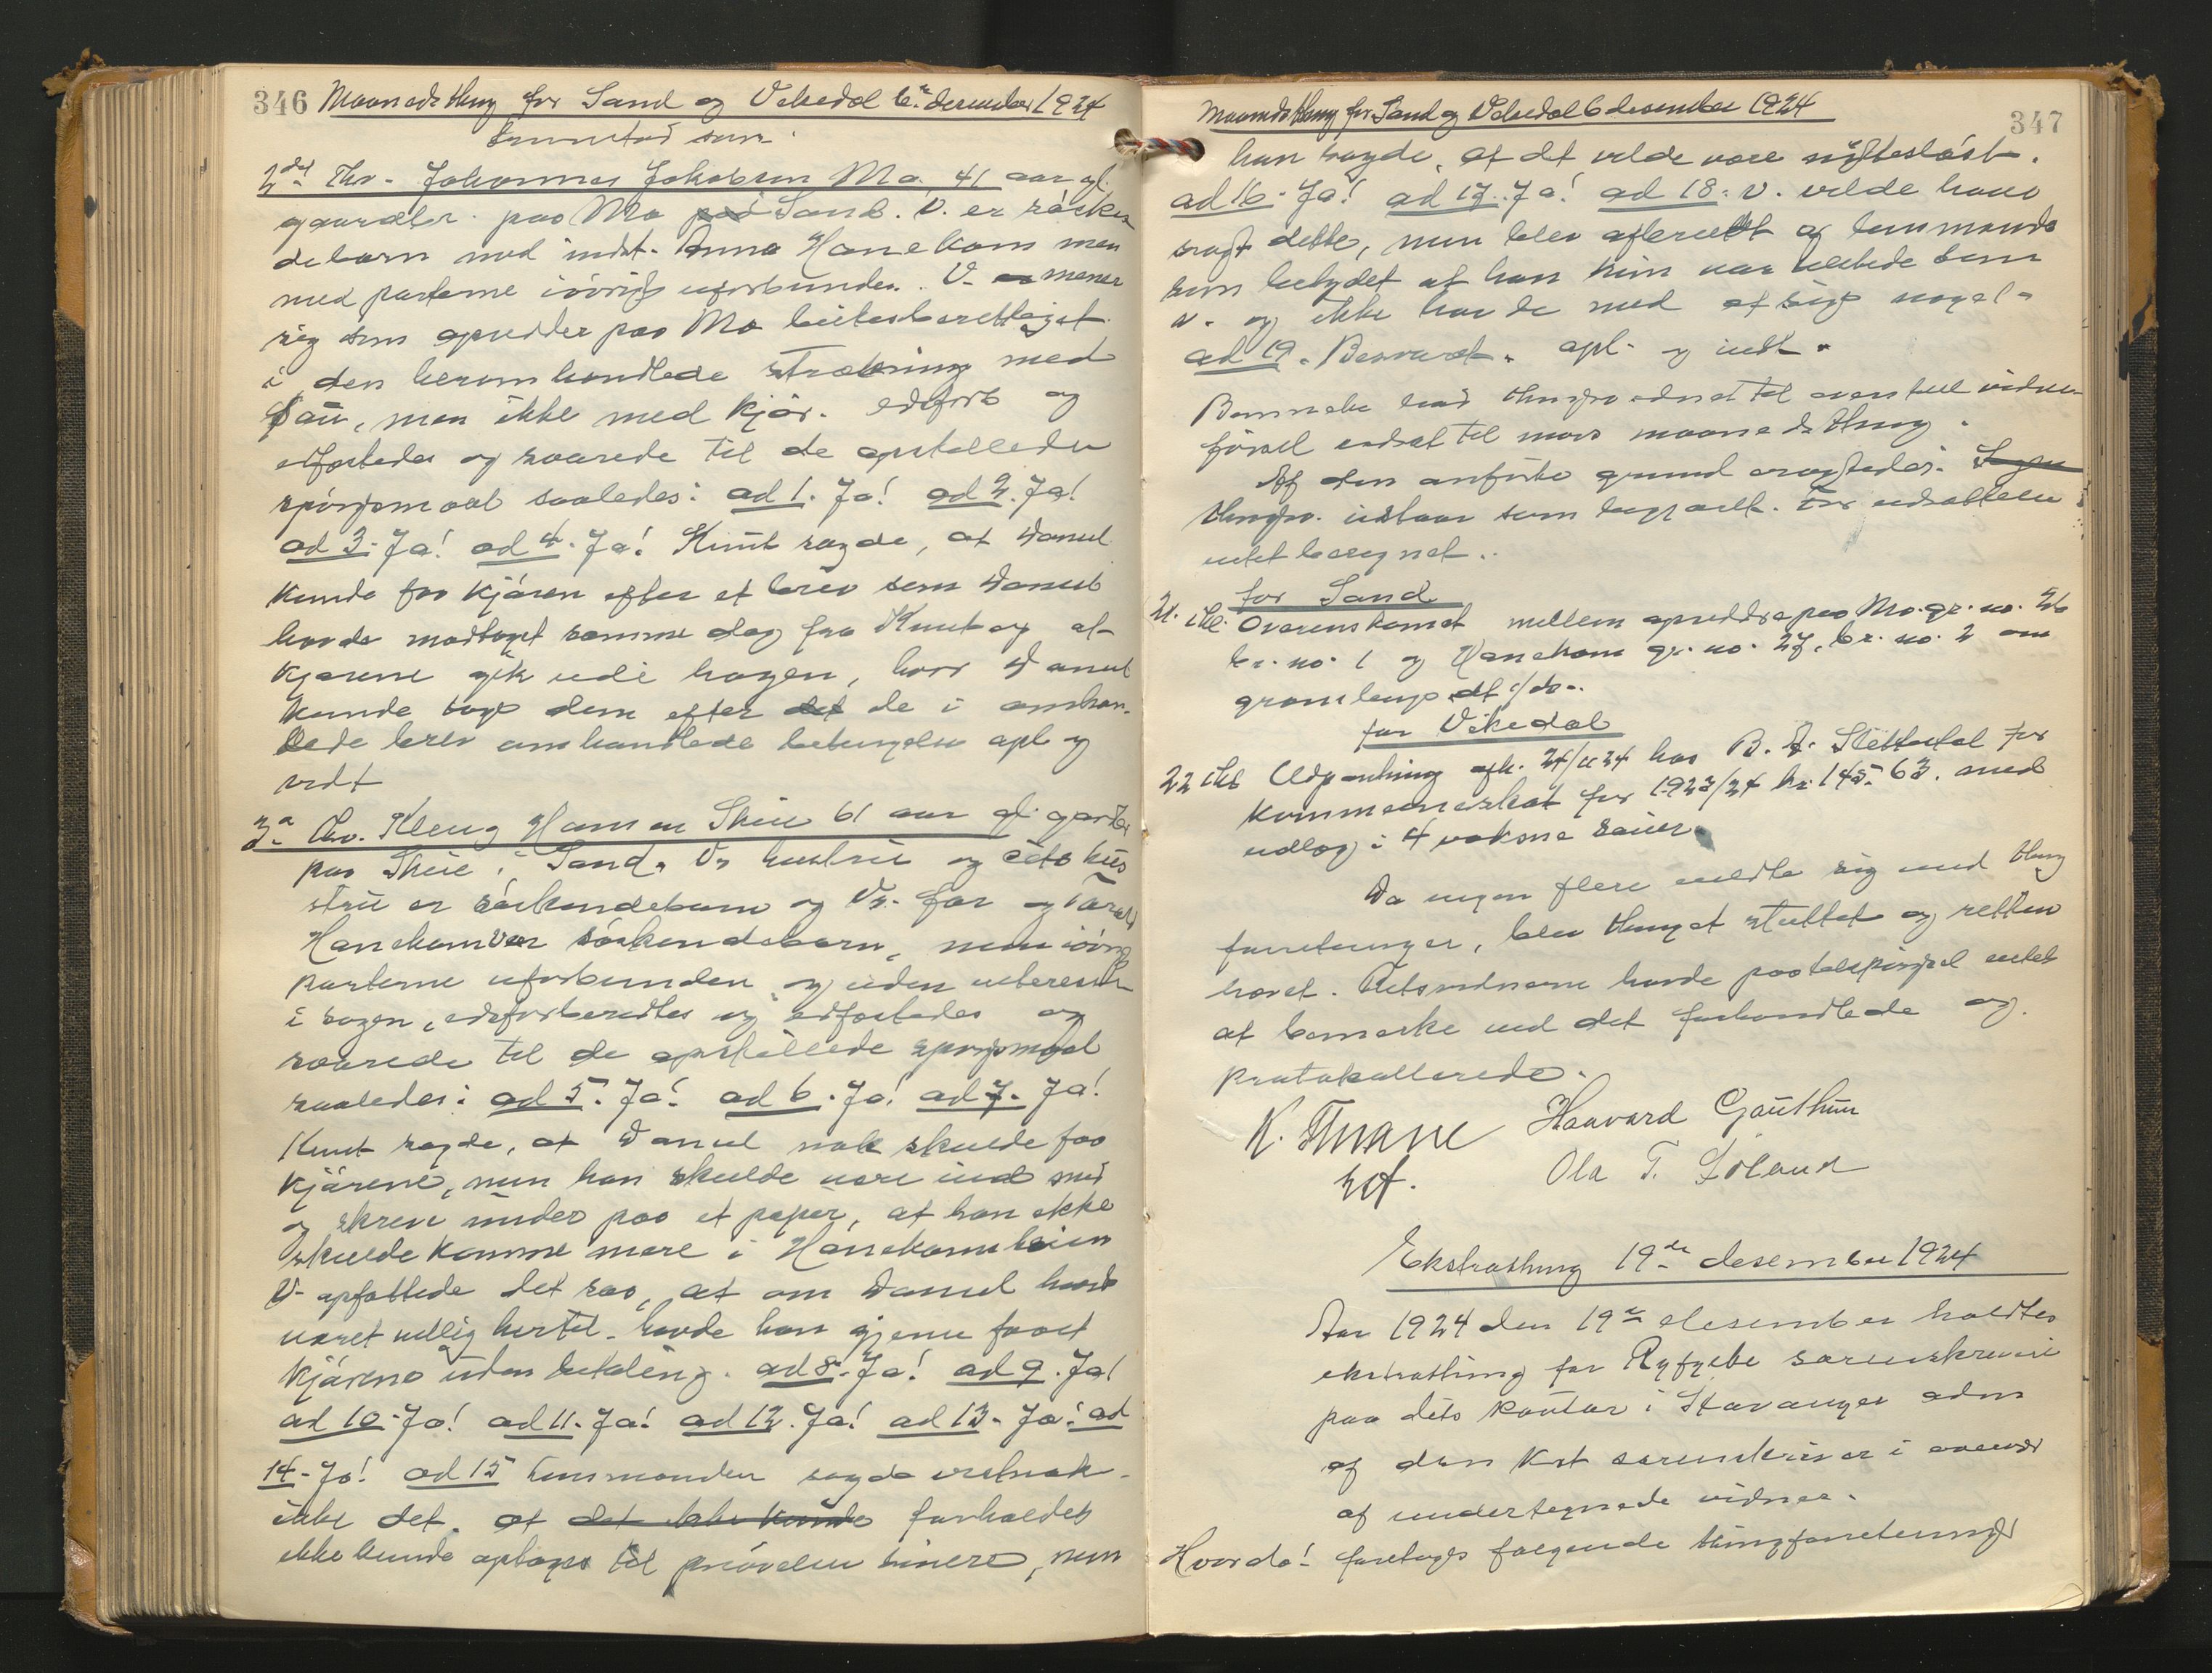 346 Maanedsthing for Sand og Vikedal 6te desember 1924
2det Thv. Johannes Jakobsen Mo 41 aar gl.
gaardbr. paa Mo Sand. V. er søsken
debarn med indst. Anna Hanekam men
med parterne iövrig uforbunden. V. mener
sig som opsidder paa Mo beitesberettiget
i den heromhandlede strækning med
sau, men ikke med kjör. edsforb og
edfæstedes og svarede til de opstillede
spörgsmaal saaledes: ad 1. Ja! ad 2. Ja!
ad 3. Ja! ad 4. Ja! Knut sagde, at Daniel
kunde faa kjören efter et brev som Daniel
havde modtaget samme dag fra Knut og at
kjørene gik ude i hagen, hvor Daniel
kunde tage dem efter det de i omhan-
dlede brev omhandlede betingelser opl. og
vedt
3die Thv. Kleng Hansen Skeie 61 aar gl. gardbr
paa Skeie i Sand. Vs hustru og cits hus
stru er söskendebarn og Vs. far og Tarald
Hanekam var söskendebarn, men iövrig
parterne uforbunden og uden interesse
i sagen, edsforberedtes og edfæstedes og
svarede til de opstillede spörgsmaal
saaledes: ad 5. Ja! ad 6. Ja! ad 7. Ja!
Knut sagde, at Daniel nok skulde faa
kjörene, men han skulde være med
og skrive under paa et papir, at han ikke
skulde komme mere i Hanekamheien
V. opfattede det saa, at om Daniel havde
været villig hertil, havde han gjerne faaet
kjörene uden betaling. ad 8. Ja! ad 9. Ja!
ad 10. Ja! ad 11. Ja! ad 12. Ja! ad 13. Ja! ad
14. Ja! ad 15 lensmanden sagde vistnok
ikke det, at det ikke kunde forholdet
ikke kunde optages til prøvelse senere, men
Maanedsthing for Sand og Vikedal 6 desember 1924 347
han sagde, at det vilde være nyttesløst.
ad 16. Ja! ad 17. Ja! ad 18. V. vilde have
sagt dette, men blev afbrudt og lensmands
som betydet at han kun var tilstede som
v. og ikke havde med at sige noget.
ad 19. Besvaret. opl. og vedt.
til eventuel vidne-
försel udsat til næste maanedsthing.
Af den anförte grund Sagen
thingsv. udstaar som begjært. For udsættelse
intet beregnet.
for Sand
21. thl. Overenskomst mellem opsiddere paa Mo. gr. no. 26
br. no. 1 og Hanekam gr. no. 27, br. no. 2 om
grænselinje dt. s/ds.
for Vikedal
22 thl Udpantning afh. 24/11 24 hos B. Slettedal for
kommuneskat for 1923/24 kr. 145.63. med
udlæg i 4 voksne sauer.
Da ingen flere meldte sig med thing
forretninger, blev thinget sluttet og retten
hævet. Retsvidnerne havde paa tilspörgsel intet
at bemærke ved det forhandlede og
protokollerede.
K. Thrane Haavard Gauthun
Ola T. Löland
Ekstrathing 19de desember 1924
Aar 1924 den 19de desember holdtes
ekstrathing for Ryfylke sorenskriveri
paa dets kontor i Stavanger adm
af den kst sorenskriver i overvær
af undertegnede vidner.
Hvorda! foretages følgende thingforretninger